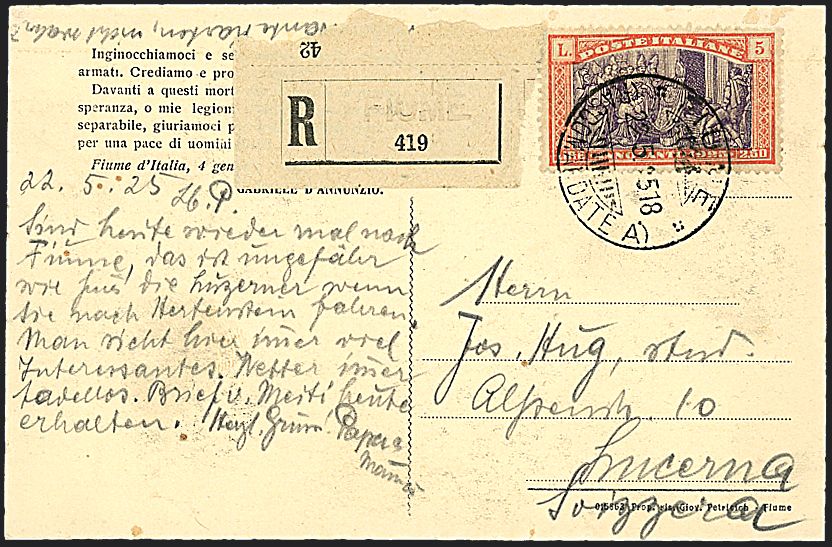 Inginocchiamoci e se
armati. Crediamo e pro
Davanti a questi mort
speranza, o mie legion
separabile, giuriamoci p
per una pace di uomini
Fiume d'Italia, 4 gen
GABRIELE D'ANNUNZIO.
42
R
FIUME
419
L. POSTE ITALIANE 5
22.5.25
22. 5. 25 H. P.
Sind heute wieder mal nach
Fiume, das ist ungefähr
wie für die Luzerner wenn
sie nach Hertenstein fahren.
Man sieht hier imer viel
Interessantes. Wetter imer
tadellos. Brief v. Meiti heute
erhalten. Herzl. Gruss Papa &
Mama
Herrn
Jos. Hug, stud.
10
Lucerna
Svizzera
015863 Prop. ris. Giov. Petricich - Fiume